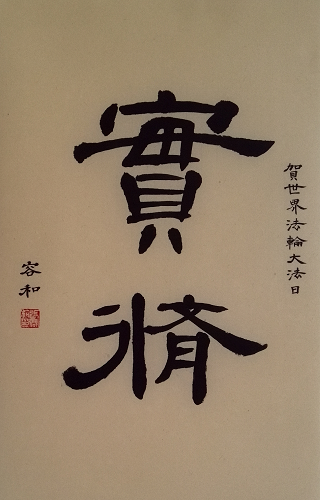 賀世界法輪大法日
實脩
容和